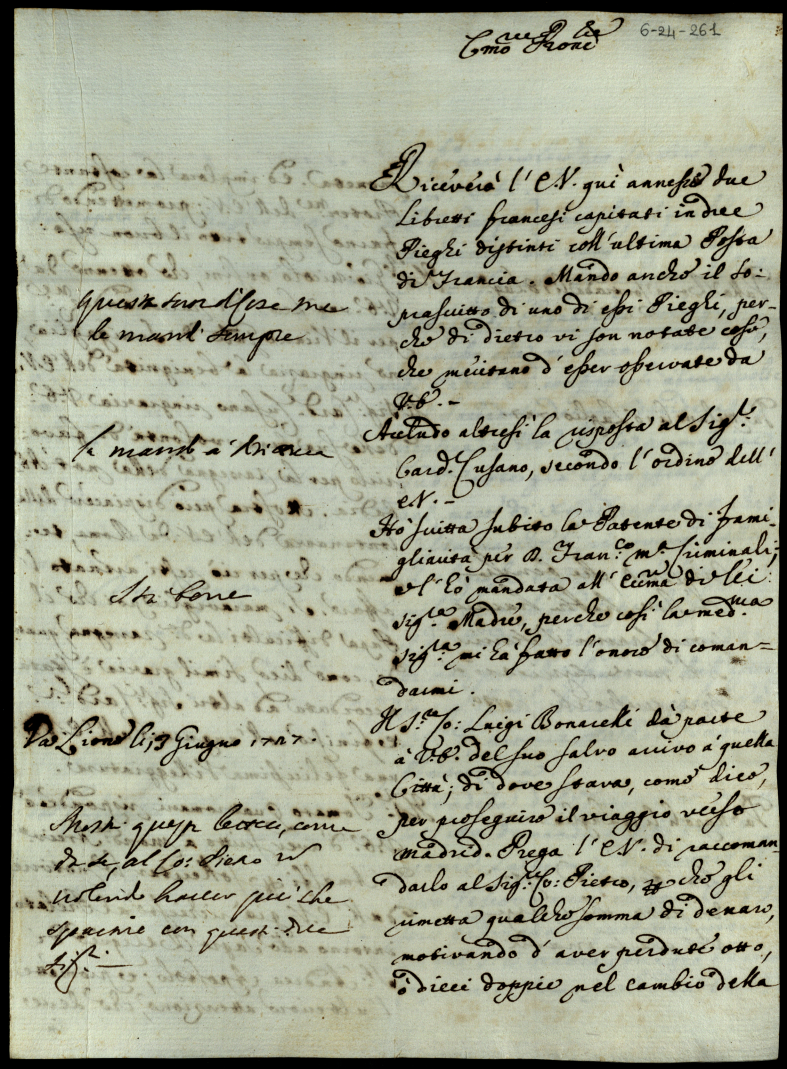 6-24-261
Emo̅ ͬᵉ Prone
Riceverà l'E.V. quì annessi due
Libretti francesi capitati in due
Pieghi distinti coll'ultima Posta
di Francia. Mando anche il so:
prascritto di uno di essi Pieghi, per-
che di dietro vi son notate cose,
che meritano d'esser osservate da
V.E. -
queste sorti di Cose me
le mandi sempre
Accludo altresì la risposta al Sig.ͬ
Card. Cusano, secondo l'ordine dell'
E.V. -
la mandi à
Hò scritta subito la Patente di fami-
gliarità per D. Fran.ᶜᵒ Mª Criminali,
e l'hò mandata all'Eccma di lei
Sig.ͬᵃ Madre, perche così la med.ᵐᵃ
Sig.ͬᵃ mi hà fatto l'onore di coman=
darmi.
Stà bene
Il S.ͬ Co: Luigi Bonacelli dà parte
à V.E. del suo salvo arrivo à quella
Città; di dove stava, come dice,
per proseguire il viaggio verso
Madrid. Prega l'E.V. di raccoman-
darlo al Sig.ͬ Co: Pietro, che gli
rimetta qualche somma di denaro,
motivando d'aver perdute otto,
ò dieci doppie nel cambio della
Da Lione li 9 Giugno 1727.
Mostri questa lettera, come
da se, al Co: Piero
volendo haver più che
spartire con questi due
Sig.ͬⁱ -